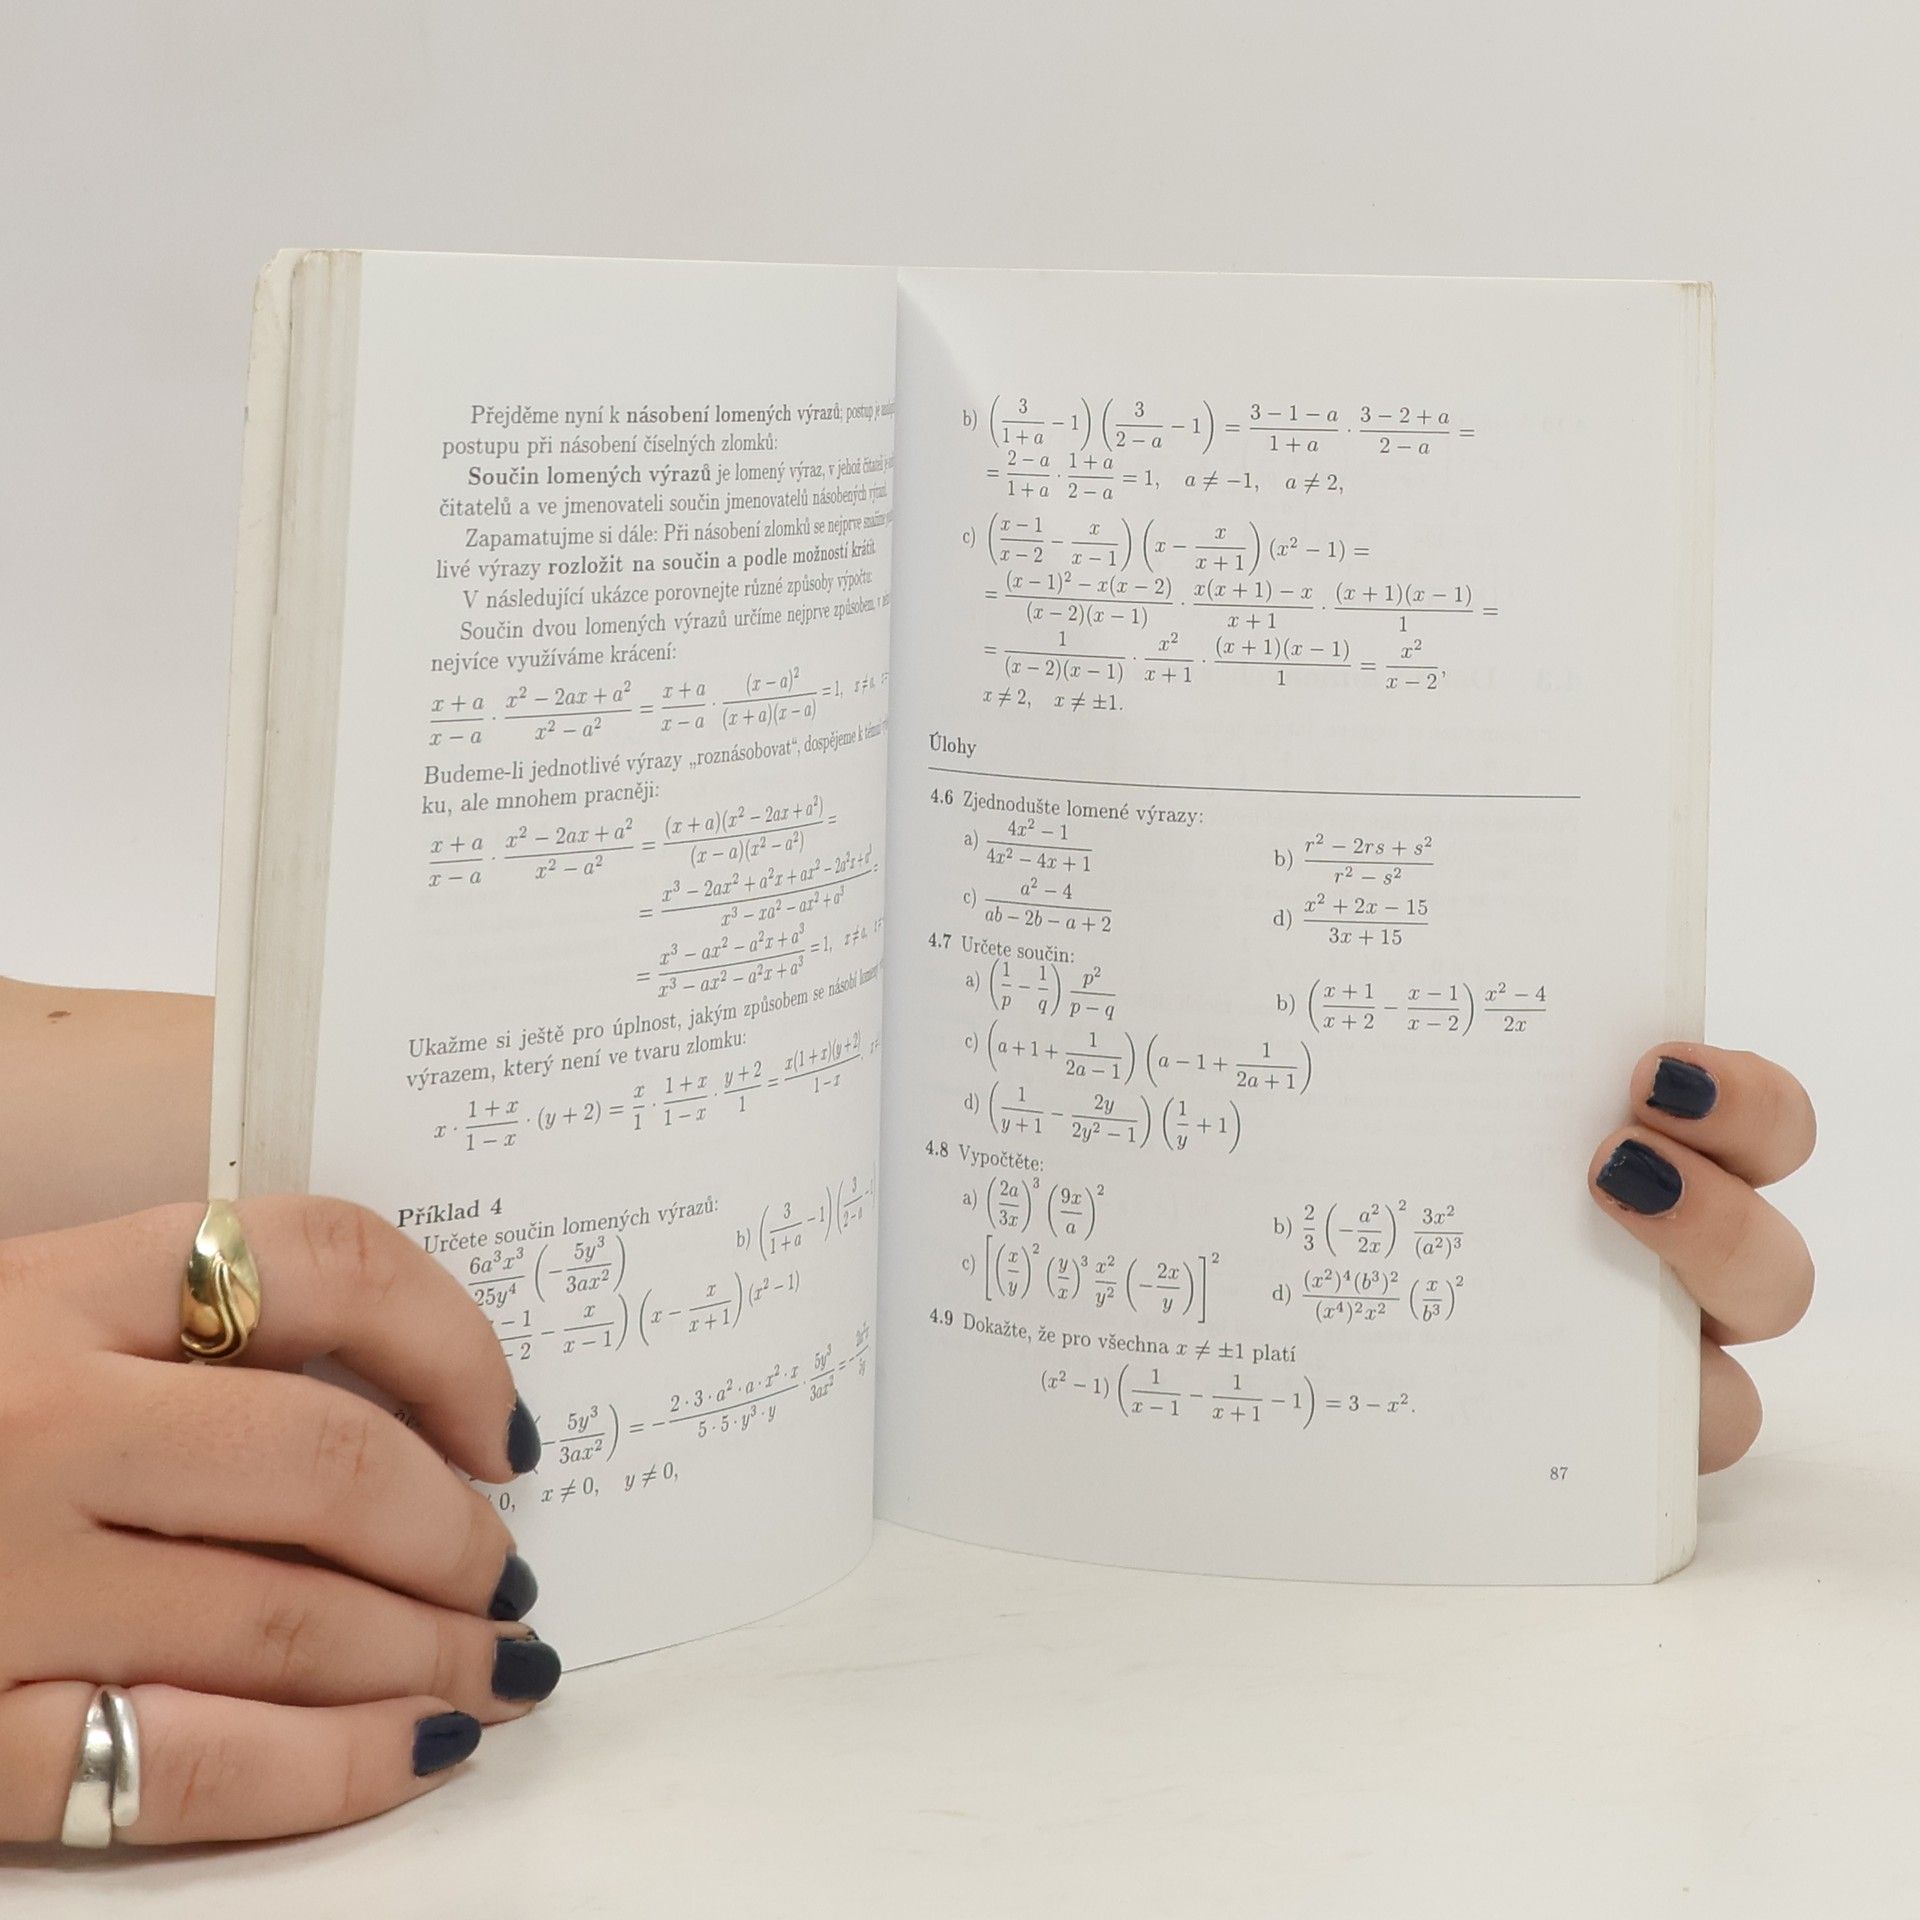 Přejděme nyní k násobení lomených výrazů; postup je
postupu při násobení číselných zlomků:
Součin lomených výrazů je lomený výraz, v jehož čitateli je
čitatelů a ve jmenovateli součin jmenovatelů násobených výrazů.
Zapamatujme si dále: Při násobení zlomků se nejprve snažíme
livé výrazy rozložit na součin a podle možností krátit.
V následující ukázce porovnejte různé způsoby výpočtu:
Součin dvou lomených výrazů určíme nejprve způsobem, v
nejvíce využíváme krácení:
\frac{x+a}{x-a} · \frac{x^2-2ax+a^2}{x^2-a^2} = \frac{x+a}{x-a} · \frac{(x-a)^2}{(x+a)(x-a)} = 1, x ≠ a,
Budeme-li jednotlivé výrazy „roznásobovat“, dospějeme k
ku, ale mnohem pracněji:
\frac{x+a}{x-a} · \frac{x^2-2ax+a^2}{x^2-a^2} = \frac{(x+a)(x^2-2ax+a^2)}{(x-a)(x^2-a^2)} =
= \frac{x^3-2ax^2+a^2x+ax^2-2a^2x+a^3}{x^3-xa^2-ax^2+a^3} =
= \frac{x^3-ax^2-a^2x+a^3}{x^3-ax^2-a^2x+a^3} = 1, x ≠ a,
Ukažme si ještě pro úplnost, jakým způsobem se násobí lomený
výrazem, který není ve tvaru zlomku:
x · \frac{1+x}{1-x} · (y+2) = \frac{x}{1} · \frac{1+x}{1-x} · \frac{y+2}{1} = \frac{x(1+x)(y+2)}{1-x},
Příklad 4
Určete součin lomených výrazů:
\frac{6a^3x^3}{25y^4} (-\frac{5y^3}{3ax^2}) b) (\frac{3}{1+a} - 1) (\frac{3}{2-a} - 1)
- \frac{x}{x-1}) (x - \frac{x}{x+1}) (x^2-1)
(-\frac{5y^3}{3ax^2}) = -\frac{2·3·a^2·a·x^2·x}{5·5·y^3·y} · \frac{5y^3}{3ax^2} =
≠ 0, x ≠ 0, y ≠ 0,
b) (\frac{3}{1+a} - 1) (\frac{3}{2-a} - 1) = \frac{3-1-a}{1+a} · \frac{3-2+a}{2-a} =
= \frac{2-a}{1+a} · \frac{1+a}{2-a} = 1, a ≠ -1, a ≠ 2,
c) (\frac{x-1}{x-2} - \frac{x}{x-1}) (x - \frac{x}{x+1}) (x^2-1) =
= \frac{(x-1)^2-x(x-2)}{(x-2)(x-1)} · \frac{x(x+1)-x}{x+1} · \frac{(x+1)(x-1)}{1} =
= \frac{1}{(x-2)(x-1)} · \frac{x^2}{x+1} · \frac{(x+1)(x-1)}{1} = \frac{x^2}{x-2},
x ≠ 2, x ≠ ±1.
Úlohy
4.6 Zjednodušte lomené výrazy:
a) \frac{4x^2-1}{4x^2-4x+1} b) \frac{r^2-2rs+s^2}{r^2-s^2}
c) \frac{a^2-4}{ab-2b-a+2} d) \frac{x^2+2x-15}{3x+15}
4.7 Určete součin:
a) (\frac{1}{p} - \frac{1}{q}) \frac{p^2}{p-q} b) (\frac{x+1}{x+2} - \frac{x-1}{x-2}) \frac{x^2-4}{2x}
c) (a+1+\frac{1}{2a-1}) (a-1+\frac{1}{2a+1})
d) (\frac{1}{y+1} - \frac{2y}{2y^2-1}) (\frac{1}{y} + 1)
4.8 Vypočtěte:
a) (\frac{2a}{3x})^3 (\frac{9x}{a})^2 b) \frac{2}{3} (-\frac{a^2}{2x})^2 \frac{3x^2}{(a^2)^3}
c) [(\frac{x}{y})^2 (\frac{y}{x})^3 \frac{x^2}{y^2} (-\frac{2x}{y})]^2 d) \frac{(x^2)^4(b^3)^2}{(x^4)^2x^2} (\frac{x}{b^3})^2
4.9 Dokažte, že pro všechna x ≠ ±1 platí
(x^2-1) (\frac{1}{x-1} - \frac{1}{x+1} - 1) = 3 - x^2.
87